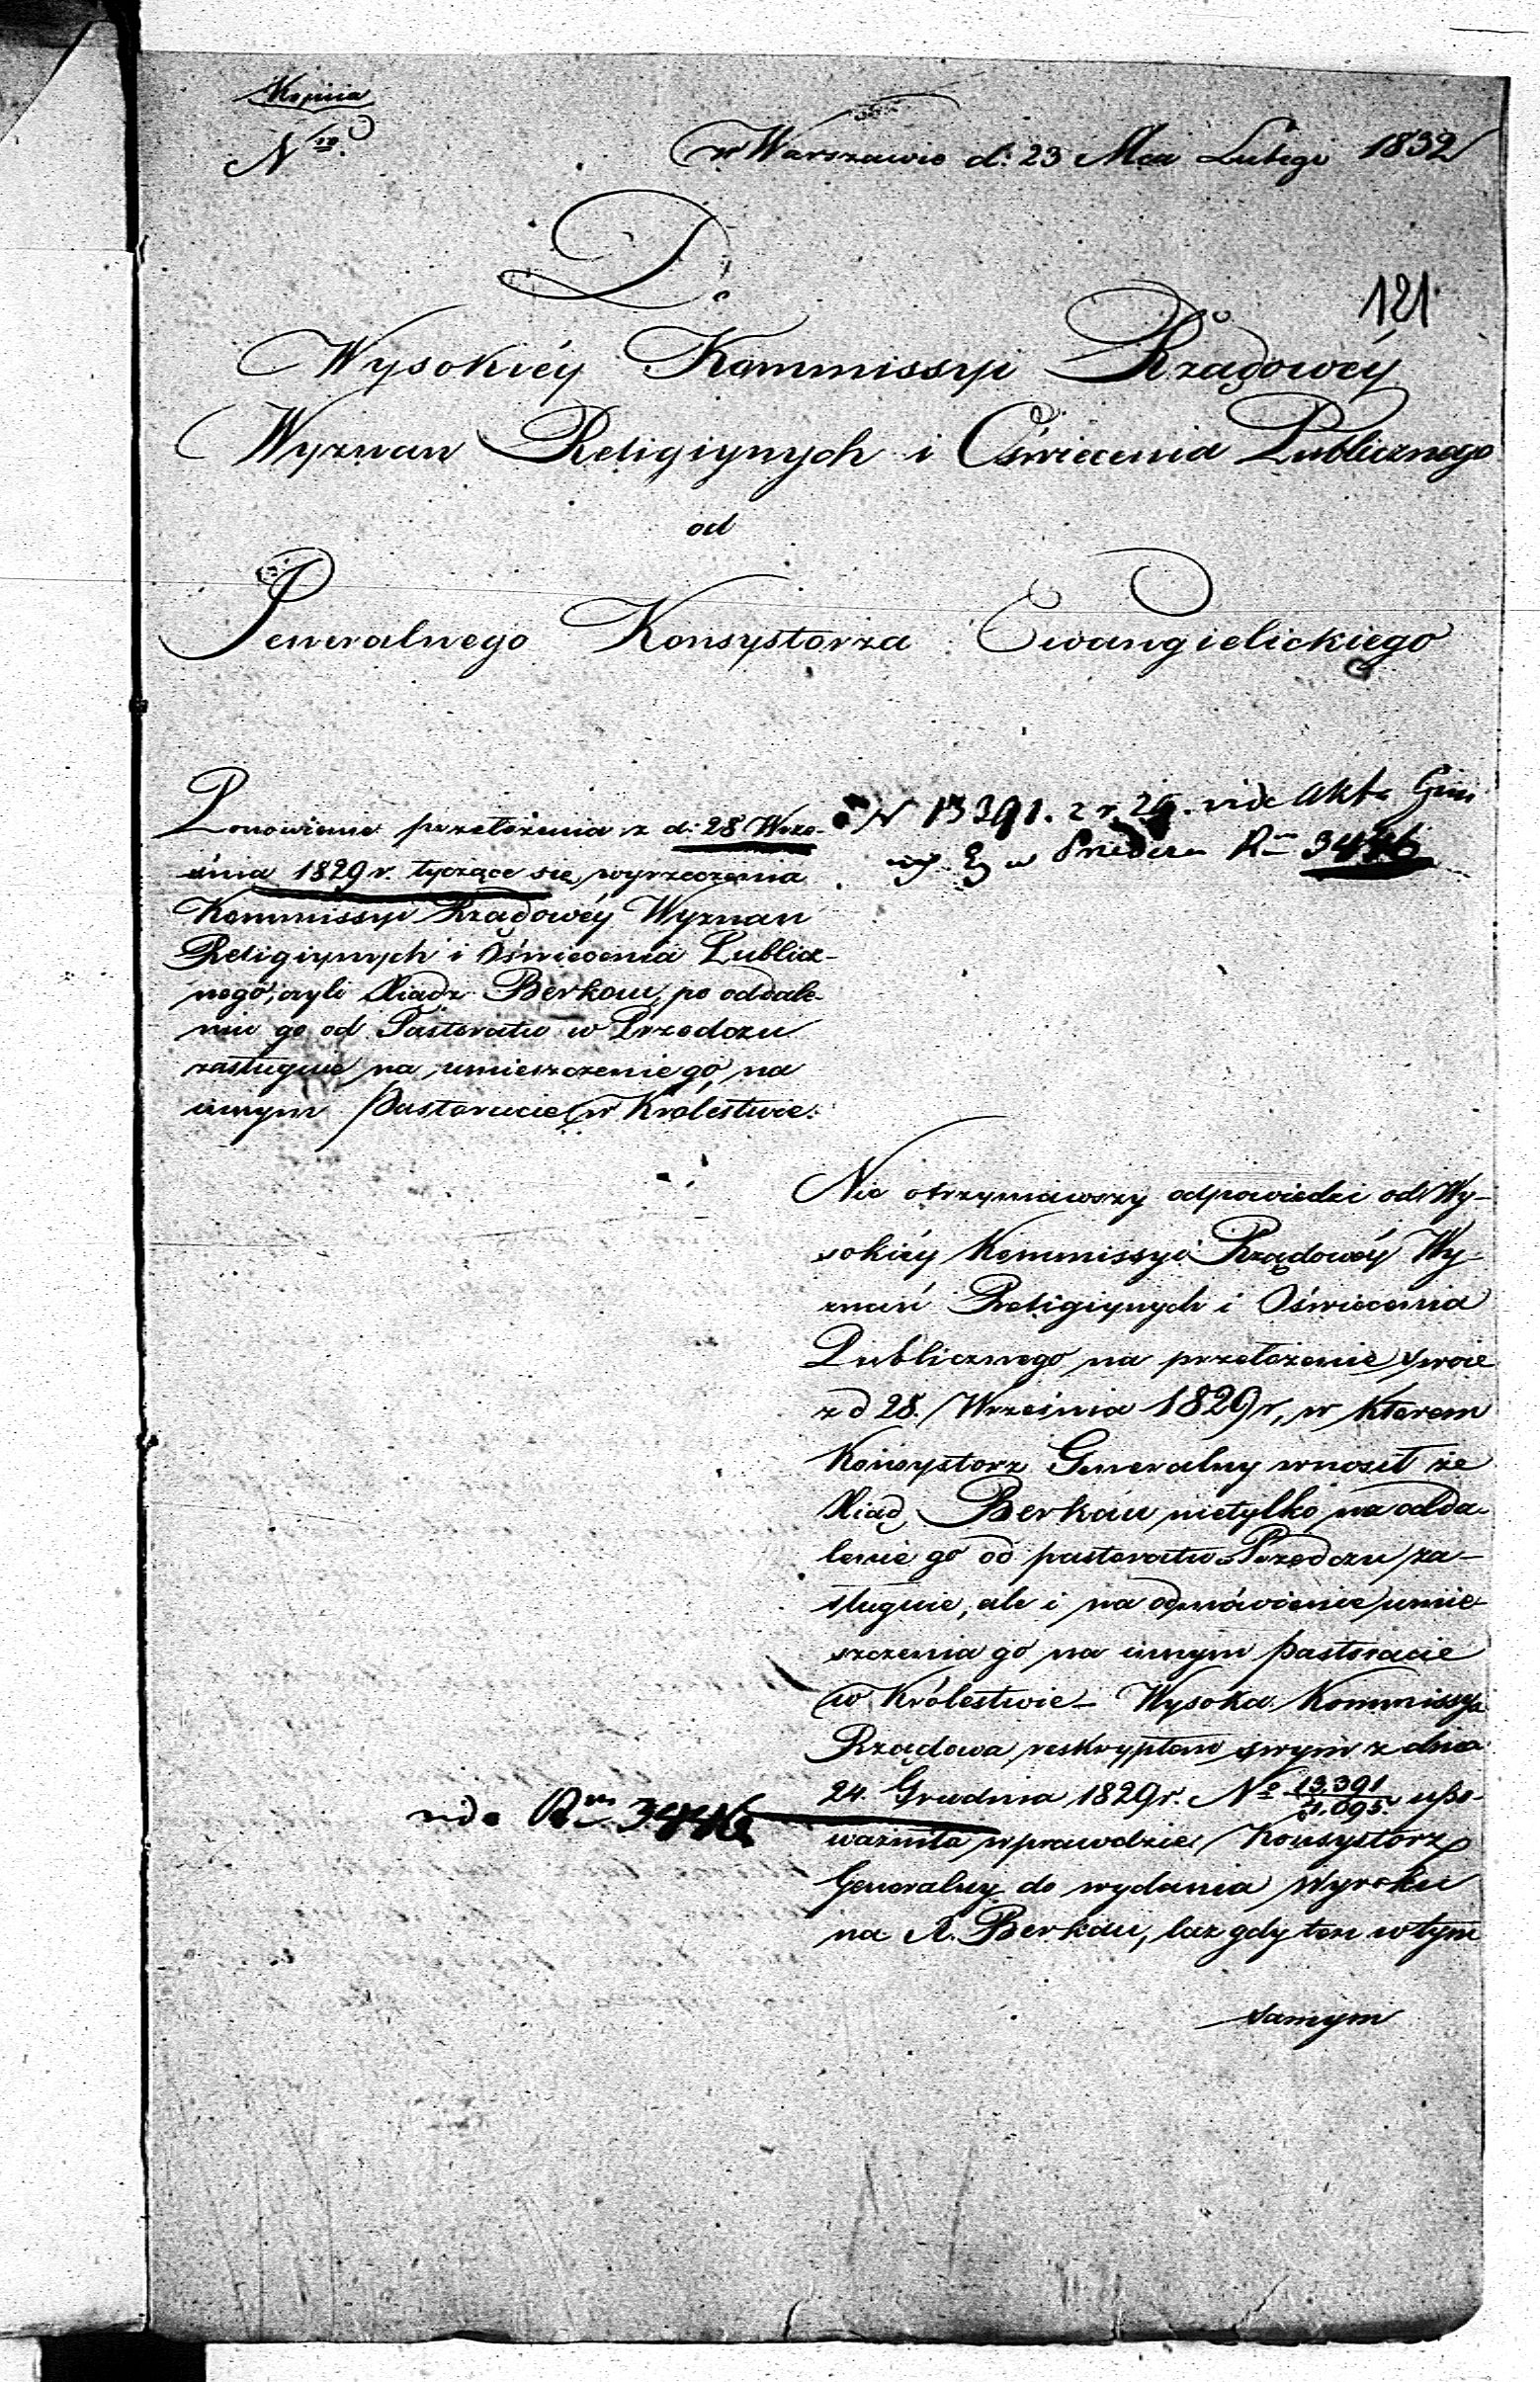 Kopiia
N<sup>ro</sup>.
w Warszawie d: 23 Mca Lutego 1832
121
Do
Wysokiéy Kommissyi Rządowéy
Wyznan Religiynych i Oświecenia Publicznego
od
Jeneralnego Konsystorza Ewangielickiego
Ponowienie przełożenia z d: 28 Wrze-
śnia 1829 r. tyczące się wyrzeczenia
Kommissyi Rządowéy Wyznan
Religiynych i Oświecenia Publicz-
nego, czyli Xiądz Berkau, po oddale-
niu go od Pastoratu w Przedczu
zasługuie na umieszczenie go na
innym Pastoracie w Królestwie.
N 13391. z r. 29. vide Akta
w 3446
Nie otrzymawszy odpowiedzi od Wy-
sokiéy Kommissyi Rządowéy Wy-
znań Religiynych i Oświecenia
Publicznego na przełożenie swoie
z d 28. Września 1829 r, w którem
Konsystorz Generalny wnosił że
Xiądz Berkau nietylko na odda-
lenie go od pastoratu Przedczu za-
sługuie, ale i na odmówienie umie-
szczenia go na innym pastoracie
w Królestwie – Wysoka Kommissya
Rządowa reskryptem swym z dnia
24. Grudnia 1829 r. N<sup>o</sup> 13.391/21.095. upo-
ważniła wprawdzie Konsystorz
Generalny do wydania Wyroku
na X. Berkau, lecz gdy ten w tym
vide 3446
samym